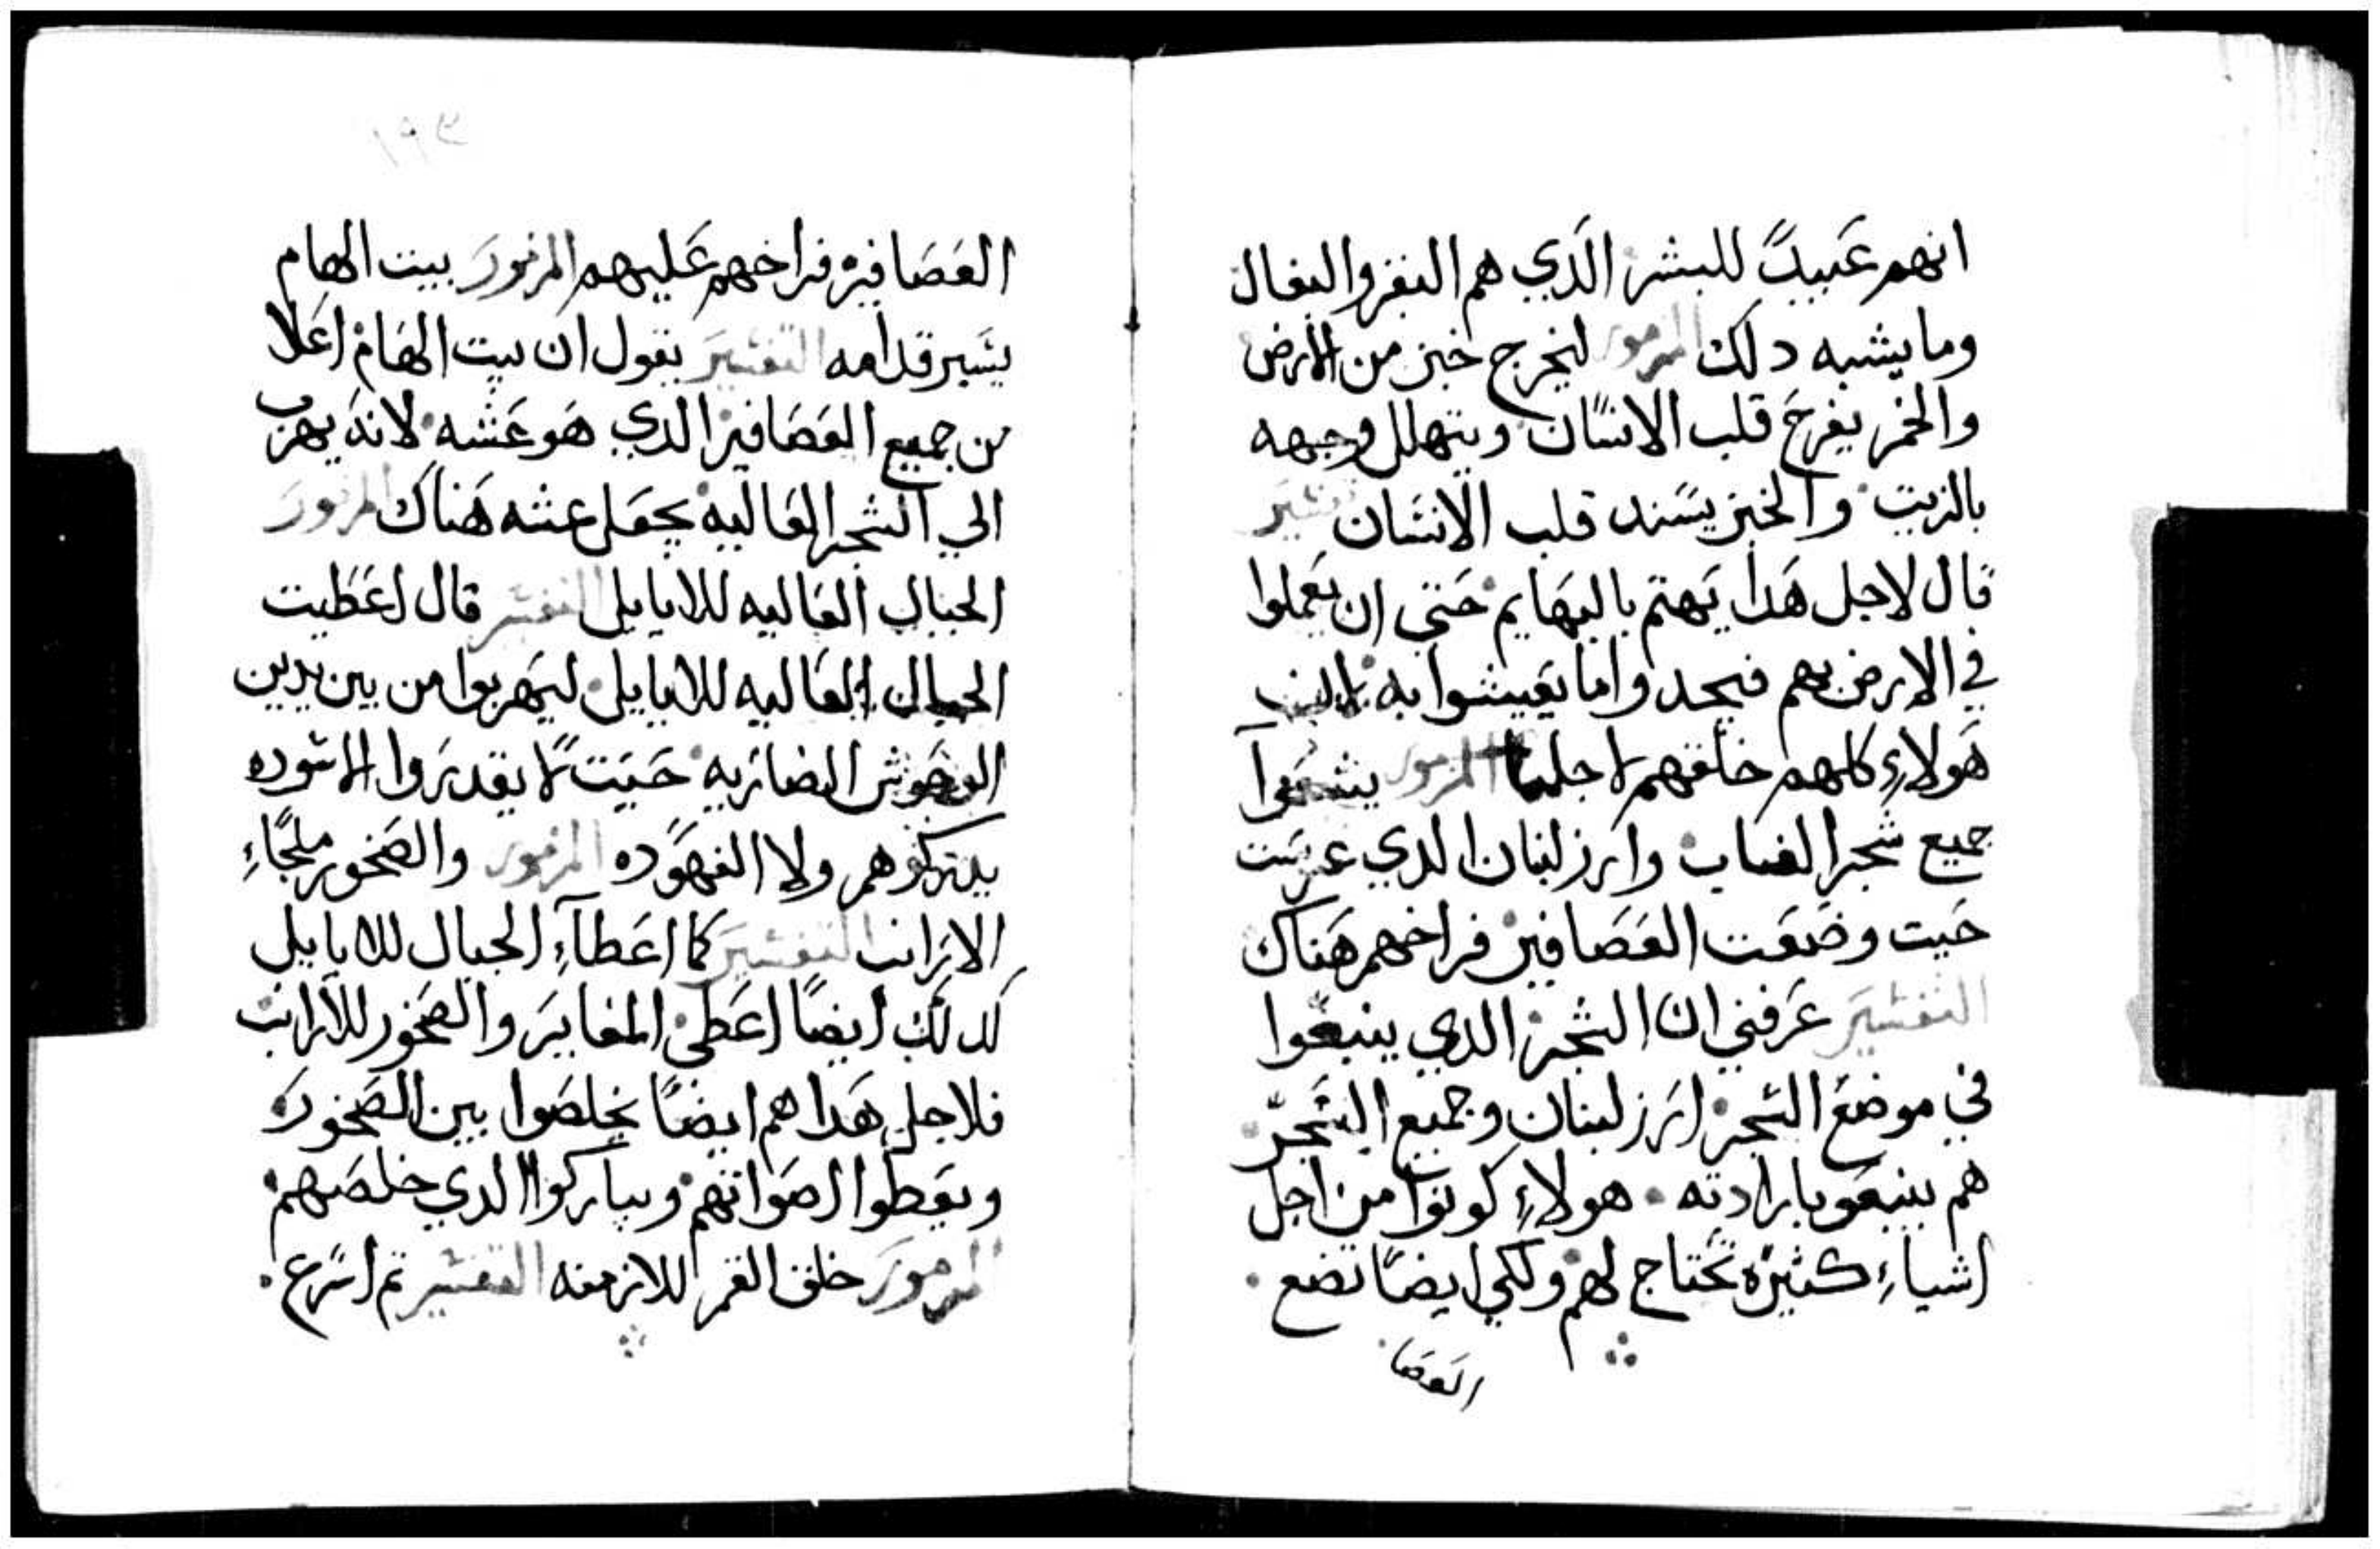 انهم عبيدً للبشر الذي هم البقر والبغال
وما يشبه دلك المزمور ليخرج خبز من الارض
والخمر يفرح قلب الانسان ويتهلل وجهه
بالزيت والخبز يسند قلب الانسان تفسير
قال لاجل هدا يهتم بالبهايم حتي ان يعملوا
في الارض بهم فيجدوا ما يعيشوا به
هولاءِ كلهم خلقهم لاجلنا المزمور يشبعوا
جميع شجر الغاب وارز لبنان الدي غرست
حيت وضعت العصافير فراخهم هناك
التفسير عرفني ان الشجر الدي ينبعوا
في موضع الشجر ارز لبنان وجميع الشجر
هم ينبعو بارادته هولاءِ كونوا من اجل
اشياءِ كثيره تحتاج لهم ولكي ايضًا تضع
العصا
العصافير فراخهم عليهم المزمور بيت الهام
يسير قدامه التفسير يقول ان بيت الهام اعلا
من جميع العصافير الدي هو عشه لانه يهرب
الي الشجر العاليه يجعل عشه هناك المزمور
الجبال العاليه للايايل التفسير قال اعطيت
الجبال العاليه للايايل ليهربوا من بين يدين
الوحوش الضاريه حيت لا يقدروا الاسوده
يدركوهم ولا الفهوده المزمور والصخور ملجاءِ
الارانب التفسير كما اعطاءِ الجبال للايايل
كدلك ايضًا اعطي المغاير والصخور للارانب
فلاجل هدا هم ايضًا يخلصوا بين الصخور
ويعطوا اصواتهم ويباركوا الدي خلصهم
المزمور خلق القمر للازمنه التفسير تم اسرع